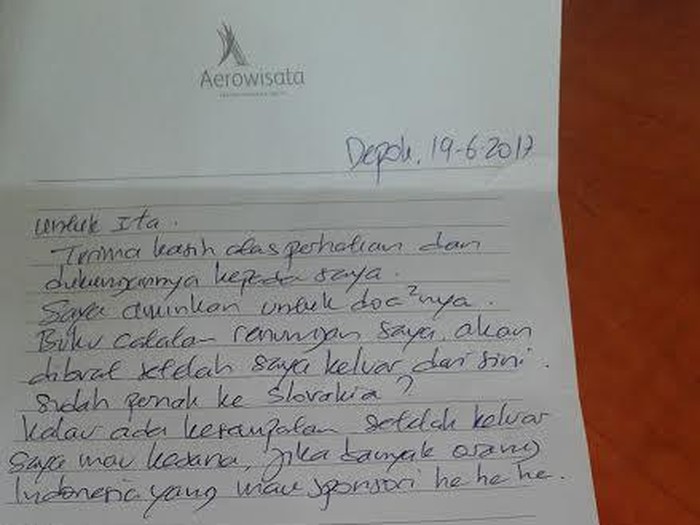 Aerowisata
Depok, 19-6-2017
untuk Ita.
Terima kasih atas perhatian dan
dukungannya kepada saya.
Saya aminkan untuk doa²nya.
Buku catatan renungan saya, akan
dibuat setelah saya keluar dari sini.
Sudah pernah ke Slovakia?
Kalau ada kesempatan setelah keluar
saya mau kesana, jika banyak orang
Indonesia yang mau sponsori he he he.